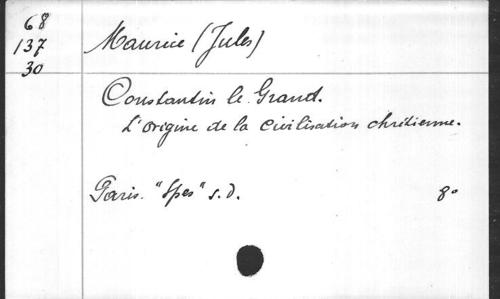 68
137
30
Maurice (Jules)
Constantin le Grand.
L'origine de la civilisation chrétienne.
Paris. "Spes" s.d. 8°